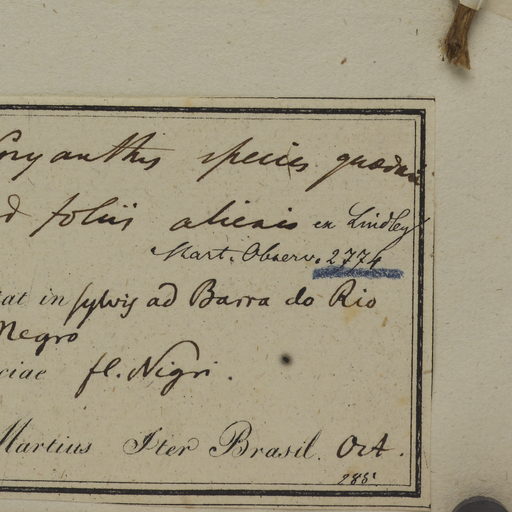 oryanthis species quaedam
d foliis alienis ex Lindley
Mart. Observ. 2774
tat in sylvis ad Barra do Rio
Negro
ciae fl. Nigri.
Martius Iter Brasil. Oct.
285